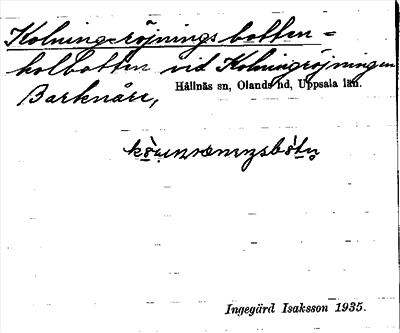 Kolningsröjningsbotten =
kolbotten vid Kolningröjningen
Barknåre,
Hållnäs sn, Olands hd, Uppsala län.
Ingegärd Isaksson 1935.